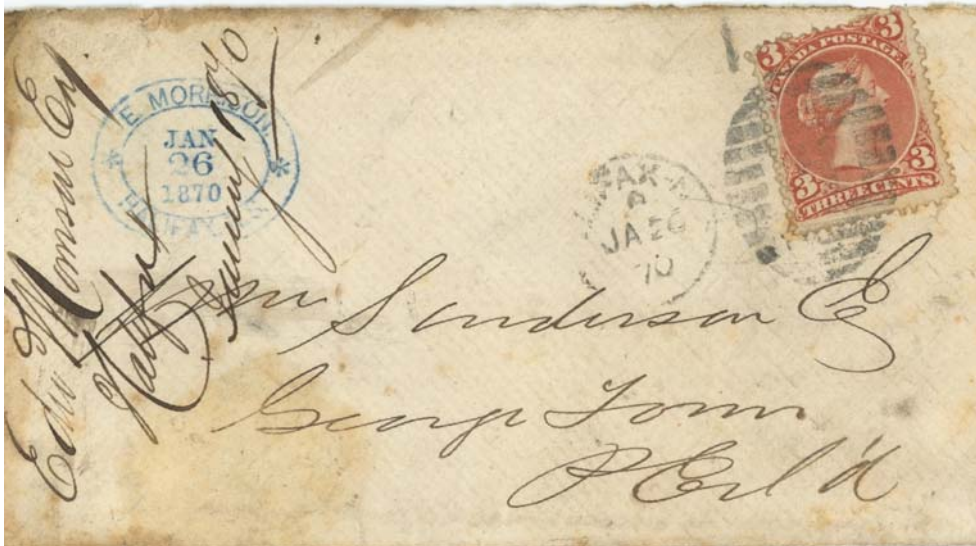 Edw Morrison Esq
Halifax
January 1870
E. MORRISON.
JAN
26
1870
HALIFAX N.S.
3 CANADA POSTAGE 3
3 THREE CENTS 3
A
JA 26
70
Wm Sanderson Esq
George Town
P E Isl'd